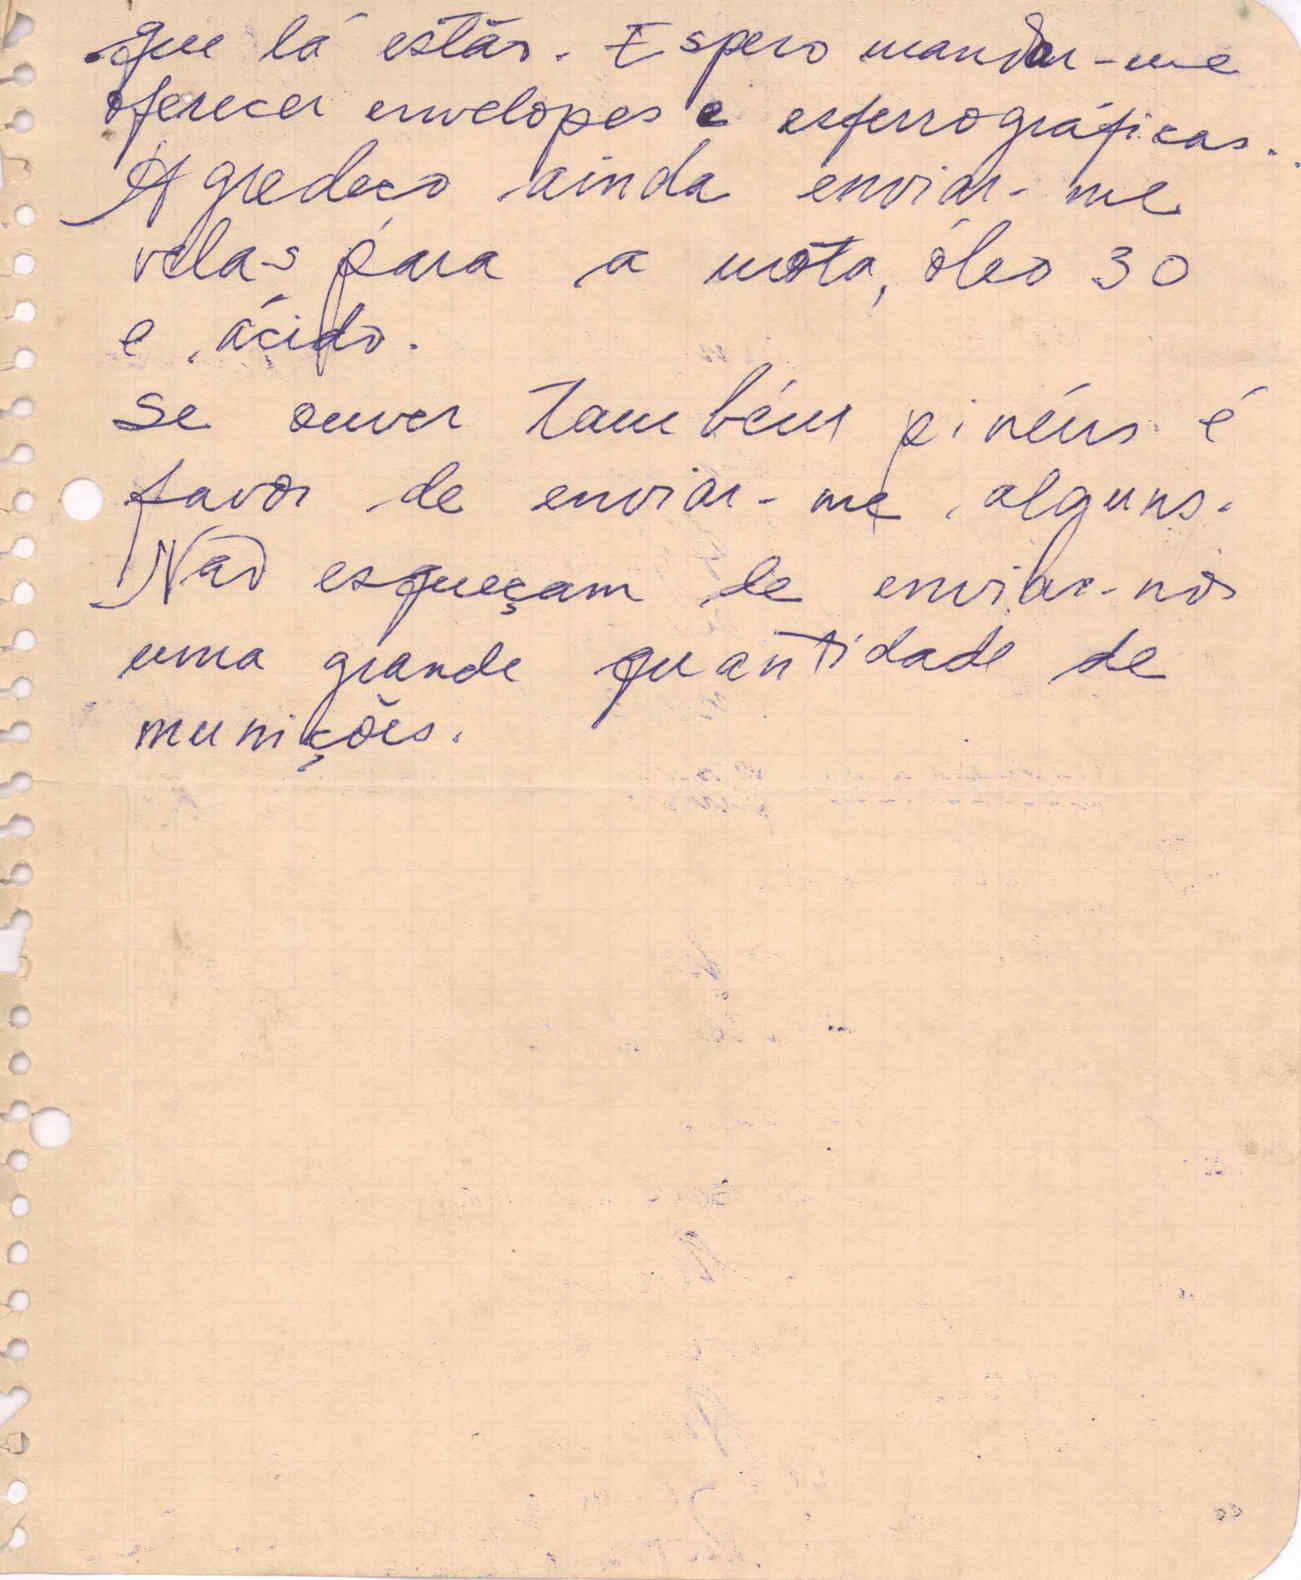 que lá estão. Espero mandar-me
oferecer envelopes e esferrográficas.
Agradeço ainda enviar-me
velas para a mota, óleo 30
e ácido.
Se ouver também pinéus é
favor de enviar-me alguns.
Não esqueçam de enviar-nos
uma grande quantidade de
munições.